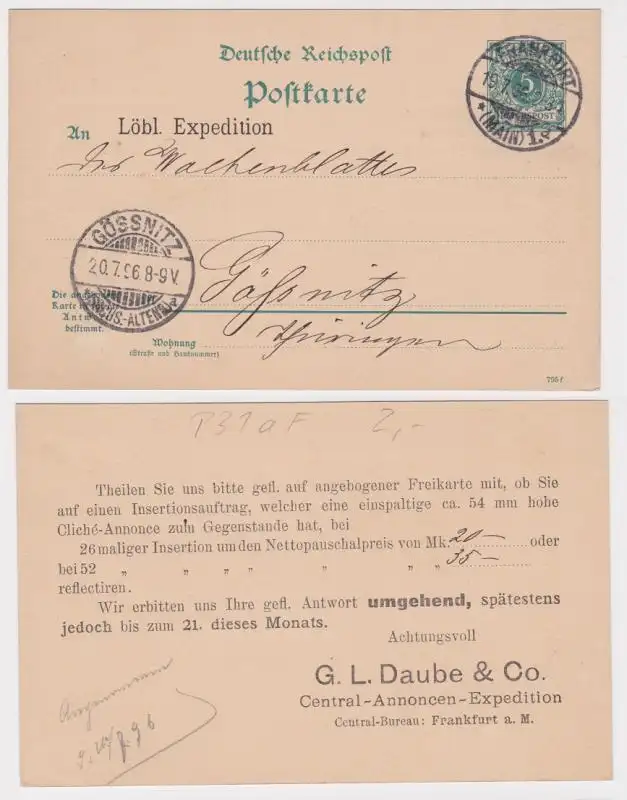 Deutsche Reichspost
Postkarte
FRANKFURT
19 7
(MAIN) 1.
5
REICHSPOST
An Löbl. Expedition
des Wochenblattes
GÖSSNITZ
20.7.96.8-9V.
Gößnitz
Die
Karte
Antwort
bestimmt.
Thüringen
Wohnung
(Straße und Hausnummer)
795f
P31aF 2,-
Theilen Sie uns bitte gefl. auf angebogener Freikarte mit, ob Sie
auf einen Insertionsauftrag, welcher eine einspaltige ca. 54 mm hohe
Cliché-Annonce zum Gegenstande hat, bei
26 maliger Insertion um den Nettopauschalpreis von Mk. 20- oder
bei 52 „ „ „ „ „ „ „ 35-
reflectiren.
Wir erbitten uns Ihre gefl. Antwort umgehend, spätestens
jedoch bis zum 21. dieses Monats.
Achtungsvoll
G. L. Daube & Co.
Central-Annoncen-Expedition
Central-Bureau: Frankfurt a. M.
Angenommen